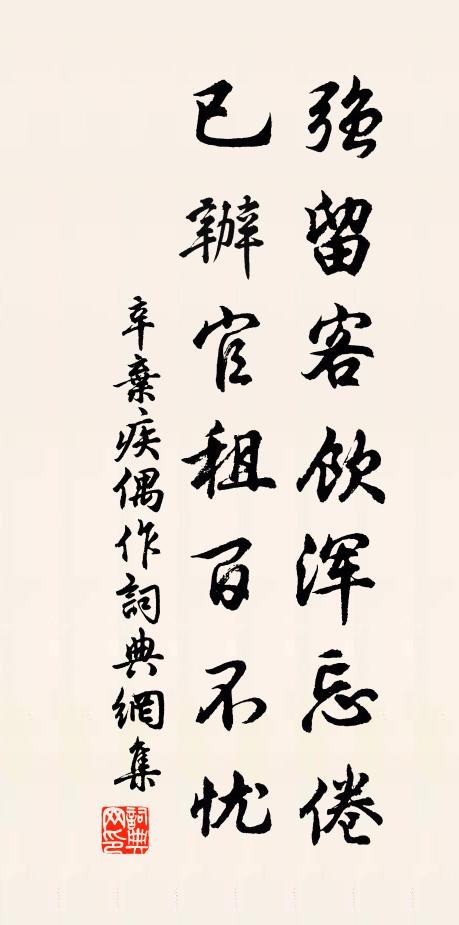 强留客饮浑忘倦
已辦官租百不忧
辛棄疾偶作詞典網集
詞典網印